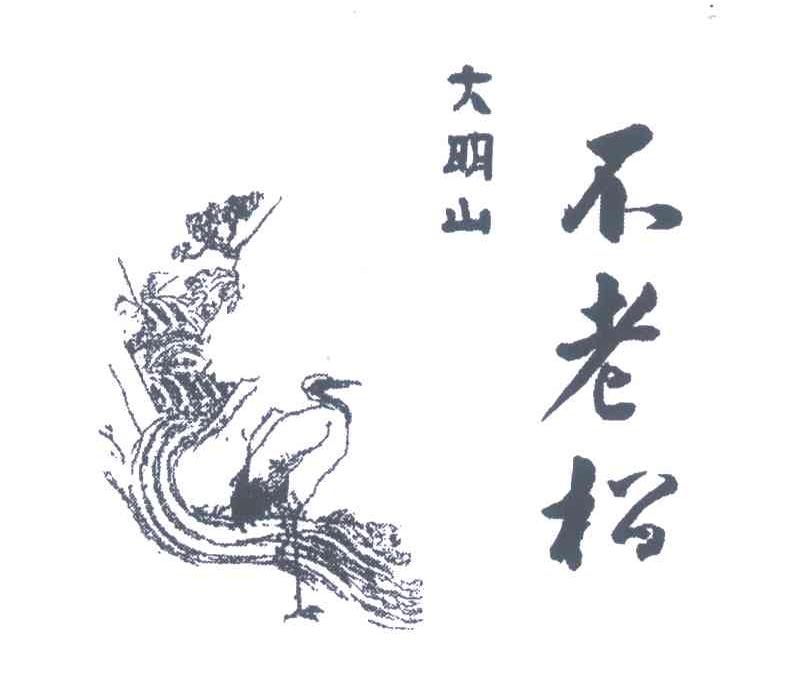 不老松
大明山